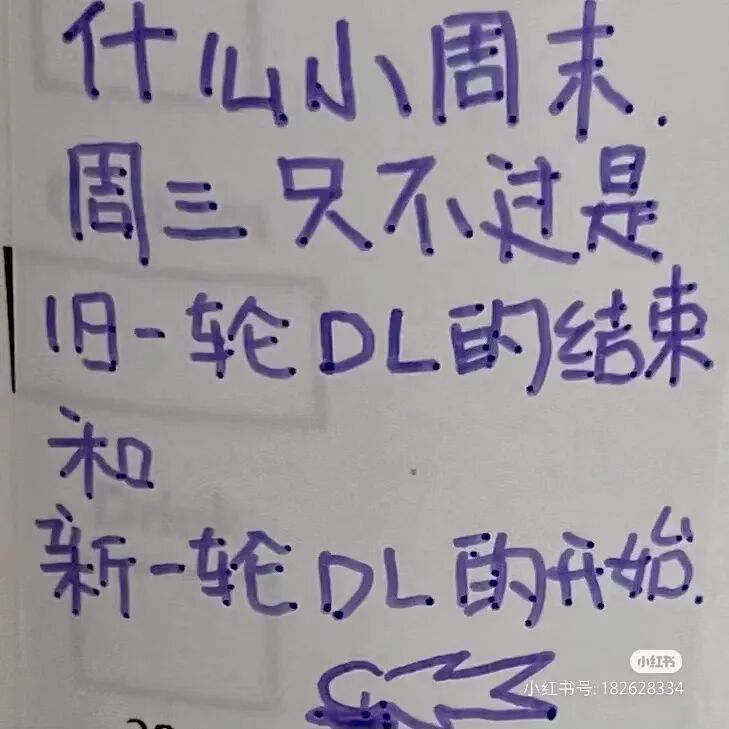 什么小周末.
周三只不过是
旧一轮DL的结束
和
新一轮DL的开始.
小红书
小红书号: 182628334